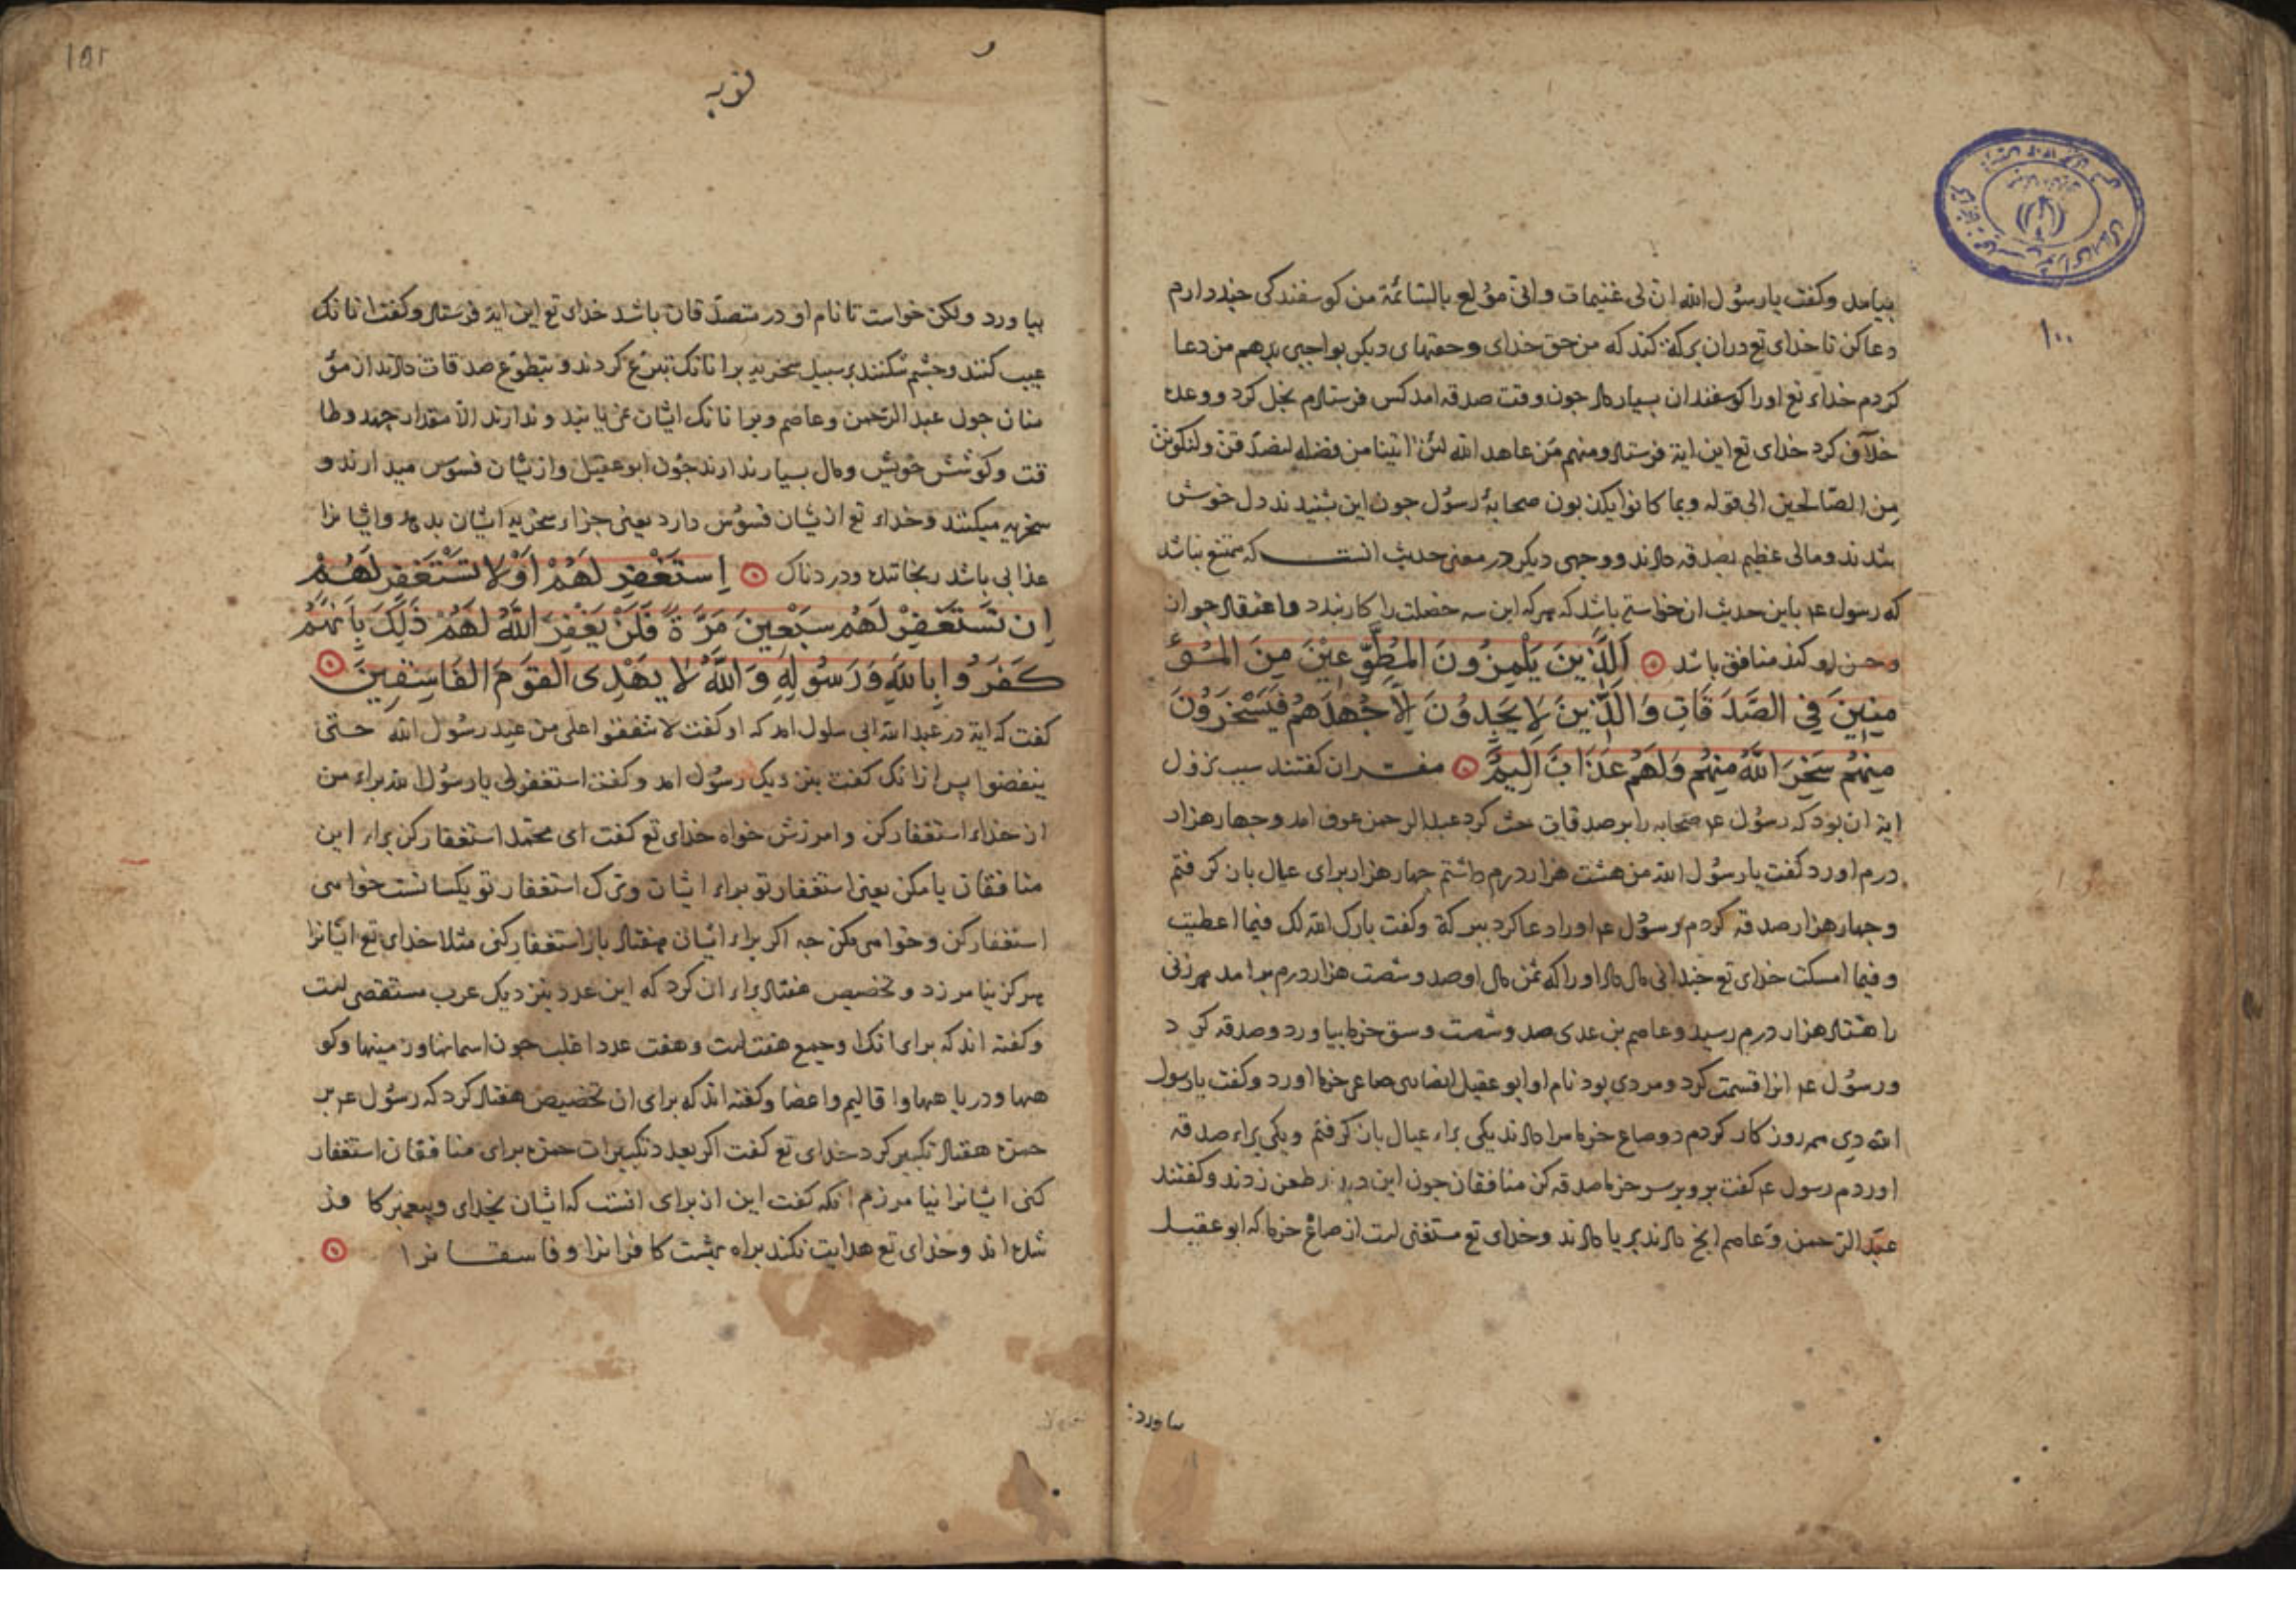 بیامد وکفت یا رسول الله ان لی غنیمات وانی مولع بالسائمة من کوسفندکی چند دارم
دعا کن تا خدای تع دران برکة کند که من حق خدای وحقهای دیکر بواجبی بدهم من دعا
کردم خداء تع اورا کوسفندان بسیار داد جون وقت صدقه امد کس فرستادم بخل کرد ووعده
خلاف کرد خدای تع این ایة فرستاد ومنهم من عاهد الله لئن اتینا من فضله لنصدقن ولنکونن
من الصالحین الی قوله وبما کانوا یکذبون صحابهٔ رسول جون این بشنیدند دل خوش
شدند ومالی عظیم بصدقه دادند ووجهی دیکر در معنی حدیث انست که ممتنع نباشد
که رسول عم باین حدیث ان خواسته باشد که هرکه این سه خصلت را کار بندد واعتقاد جواز
وحسن او کند منافق باشد اَلَّذینَ یَلْمِزُونَ المُطَّوِّعِیْنَ مِنَ المُؤ
مِنِینَ فِی الصَّدَقَاتِ وَالَّذِینَ لَا یَجِدُونَ اِلَّا جُهْدَهُمْ فَیَسْخَرُوْنَ
مِنْهُم سَخِرَ اللّٰهُ مِنْهُم وَلَهُم عَذَابٌ اَلِیمٌ مفسران کفتند سبب نزول
ایة ان بود که رسول عم صحابه را بر صدقات حث کرد عبد الرحمن عوف امد وجهار هزار
درم اورد کفت یا رسول الله من هشت هزار درم داشتم جهار هزار برای عیال بازکرفتم
وجهار هزار صدقه کردم رسول عم اورا دعا کرد ببرکة وکفت بارک الله لک فیما اعطیت
وفیما امسکت خدای تع جندانی مال داد اورا که ثمن مال او صد وشصت هزار درم برامد هر زنی
را هشتاد هزار درم رسید وعاصم بن عدی صد وشصت وسق خرما بیاورد وصدقه کرد
ورسول عم انرا قسمت کرد ومردی بود نام او ابو عقیل انصاری صاعی خرما اورد وکفت یا رسول
الله دی همه روز کار کردم دو صاع خرما مرا دادند یکی براء عیال بازکرفتم ویکی براء صدقه
اوردم رسول عم کفت برو بر سر خرما صدقه کن منافقان جون این دیدند طعن زدند وکفتند
عبد الرحمن وعاصم انج دادند بریا دادند وخدای تع مستغنی است از صاع خرما که ابو عقیل
بیاورد
توبه
بیاورد ولکن خواست تا نام او در متصدقان باشد خدای تع این ایة فرستاد وکفت انانک
عیب کنند وجشم شکنند بر سبیل سخریه برانانک تبرع کردند وبتطوع صدقات دادند از مؤ
منان جون عبد الرحمن وعاصم وبرانانک ایشان می یابند وندارند الا مقدار جهد وطا
قت وکوشش خویش ومال بسیار ندارند جون ابو عقیل وازیشان فسوس میدارند و
سخریه میکنند وخداء تع ازیشان فسوس دارد یعنی جزاء سخریه ایشان بدهد وایشانرا
عذابی باشد رنجاننده ودردناک اِستَغْفِرْ لَهُمْ اَوْ لَا تَسْتَغْفِرْ لَهُمْ
اِن تَسْتَغْفِرْ لَهُم سَبْعِینَ مَرَّةً فَلَنْ یَغْفِرَ اللّٰهُ لَهُمْ ذٰلِکَ بِاَنَّهُمْ
کَفَرُوا بِاللّٰهِ وَرَسُولِهِ وَاللّٰهُ لَا یَهْدِی القَوْمَ الفَاسِقِینَ
کفت که ایة در عبد الله ابی سلول امد که او کفت لا تنفقوا علی من عند رسول الله حتی
ینفضوا بس ازانک کفت بنزدیک رسول امد وکفت استغفر لی یا رسول الله براء من
از خداء استغفار کن وامرزش خواه خدای تع کفت ای محمد استغفار کن براء این
منافقان یا مکن یعنی استغفار تو براء ایشان وترک استغفار تو یکسانست خواهی
استغفار کن وخواهی مکن جه اکر براء ایشان هفتاد بار استغفار کنی مثلا خدای تع ایشانرا
هرکز نیامرزد وتخصیص هفتاد براء ان کرد که این عدد بنزدیک عرب مستقصی است
وکفته اند که برای انک او جمع هفت است وهفت عدد اغلب جون اسمانها وزمینها وکو
هها ودریاهها واقالیم واعضا وکفته اند که برای ان تخصیص هفتاد کرد که رسول عم بر
حمزه هفتاد تکبیر کرد خدای تع کفت اکر بعدد تکبیرات حمزه برای منافقان استغفار
کنی ایشانرا نیامرزم انکه کفت این از برای انست که ایشان بخدای وبیغمبر کافر
شده اند وخدای تع هدایت نکند براه بهشت کافرانرا وفاسقانرا